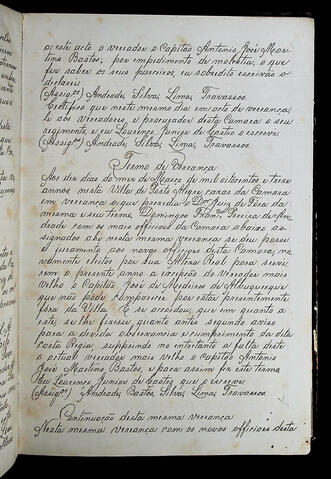 a este acto o vereador o Capitão Antonio José Mar-
tins Bastos; por impedimento de molestia, o que
fez saber os seus parceiros, eu sobredito escrivão o
declarei
(Assigos) Andrade, Silva, Lima, Travassos.
Certifico que neste mesmo dia em acto de vereança,
li aos vereadores e procurador desta Camara o seu
regimento, e eu Lourenço Junior de Castro o escrevi
(Assigos) Andrade, Silva, Lima, Travassos.
Termo de Vereança
Aos dez dias do mez de Março de mil oitocentos e treze
annos nesta Villa de Porto Alegre cazas da Camara
em vereança a que prezedia o Dor Juiz de Fóra da
mesma e seu termo, Domingos Franco Pereira de An-
drade com os mais officiaes da Camara abaixo as-
signados ahi nesta mesma vereança se deu posse
e juramento aos novos officiaes desta Camara, no-
vamente eleitos por Sua Alteza Real para servi-
rem o presente anno a excepção do vereador mais
velho o Capitão José de Medeiros de Albuquerque
que não pode comparecer por estar presentemente
fora da Villa. E se accordou, que em quanto a
este, se lhe fizesse quanto antes segundo aviso
para a devida observancia e cumprimento da dita
carta Regia, supprindo no entertanto a falta deste
o actual vereador mais velho o Capitão Antonio
José Martins Bastos, e para assim fiz este termo
eu Lourenço Junior de Castro, que o escrevi
(Assigos) Andrade, Bastos, Silva, Lima, Travassos
Continuação desta mesma vereança
Nesta mesma vereança com os novos officiaes desta